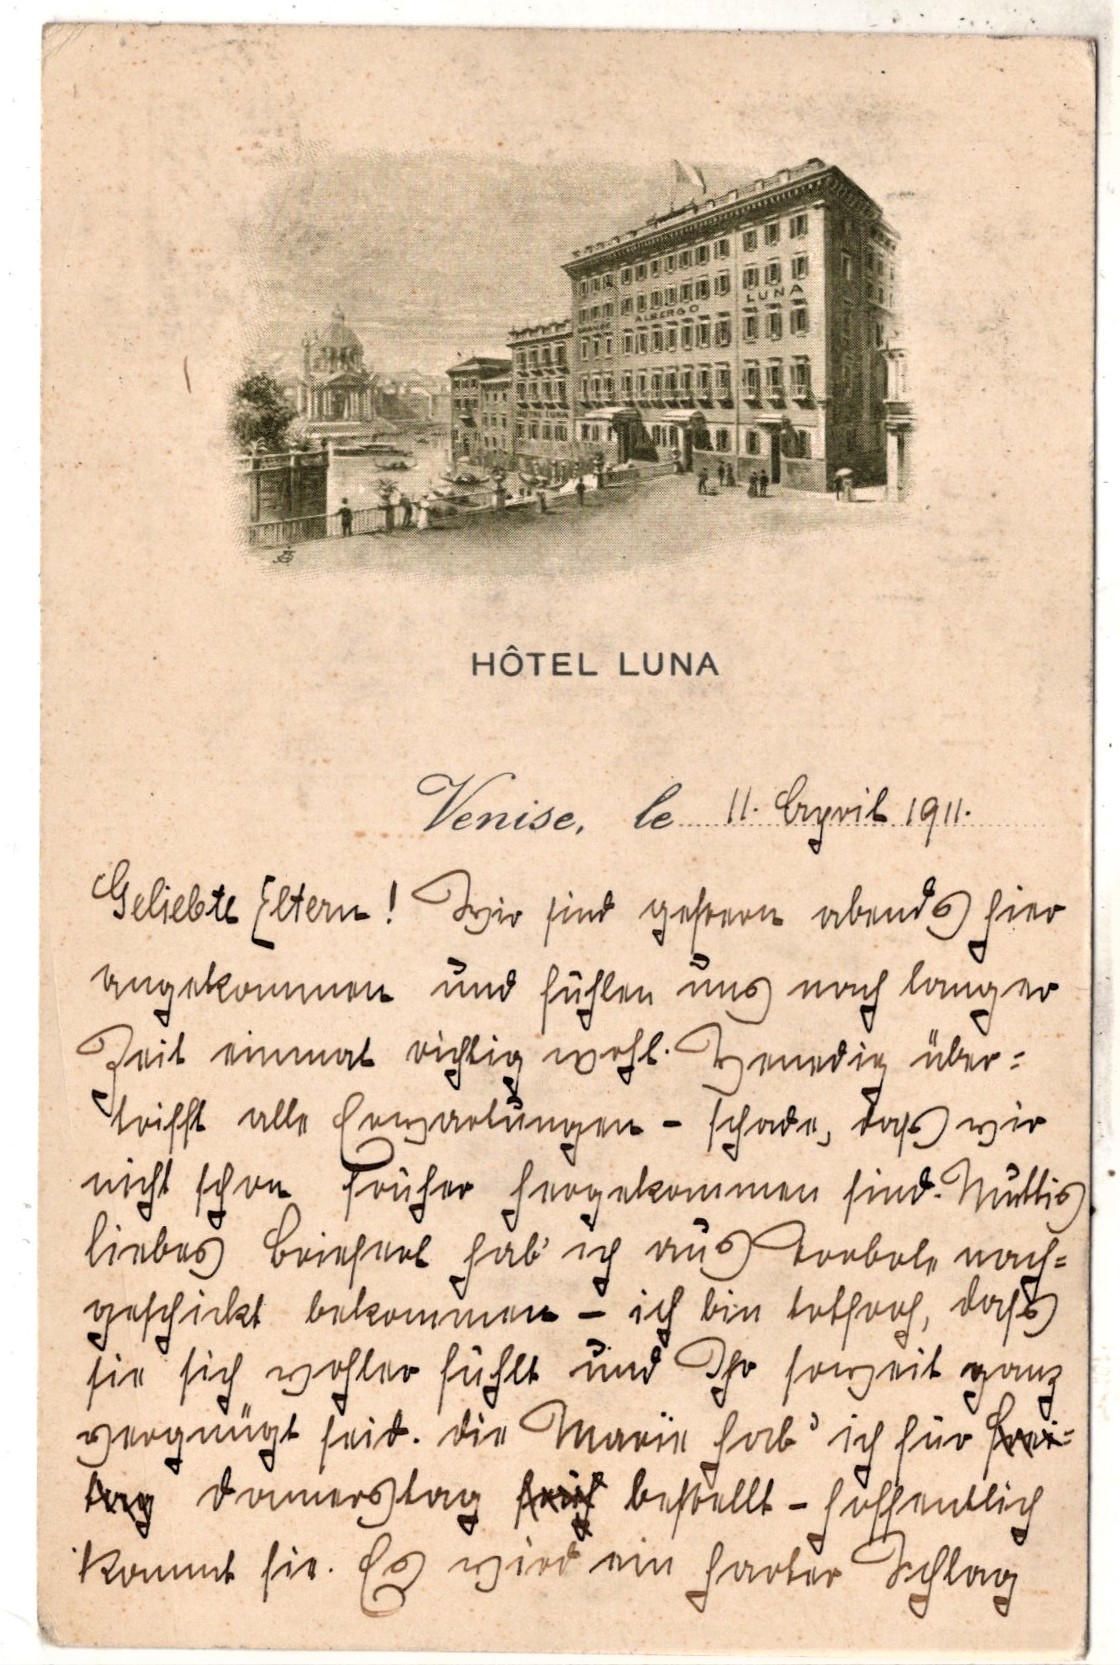 GRANDE ALBERGO LUNA
HÔTEL LUNA
Venise, le 11. April 1911.
Geliebte Eltern! Wir sind gestern abends hier
angekommen und fühlen uns nach langer
Zeit einmal richtig wohl. Venedig über=
trifft alle Erwartungen – schade, daß wir
nicht schon früher hergekommen sind. Muttis
liebes Brieferl hab' ich aus Torbole nach=
geschickt bekommen – ich bin totfroh, daß
sie sich wohler fühlt und Ihr soweit ganz
vergnügt seid. Die Marie hab' ich für Frei=
tag Donnerstag früh bestellt – hoffentlich
kommt sie. Es wird ein harter Schlag